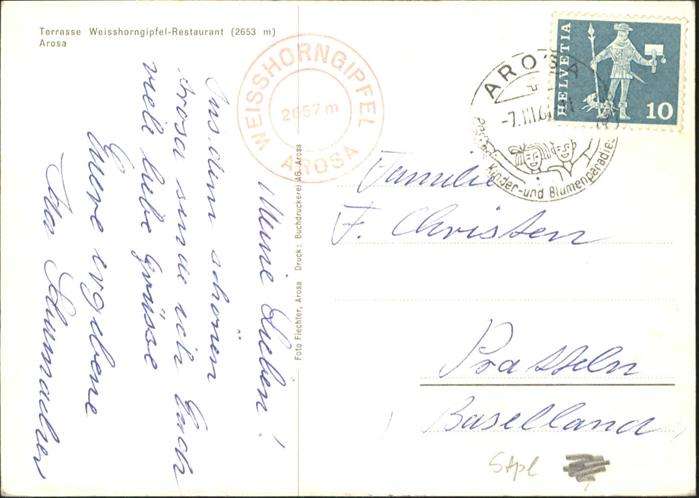 Terrasse Weisshorngipfel-Restaurant (2653 m)
Arosa
WEISSHORNGIPFEL
2657 m
AROSA
AROSA
-7.III.
Kinder- und Blumenparadies
HELVETIA
10
Meine Lieben!
Aus dem schönen
Arosa sende ich Euch
viele liebe Grüsse
Eure ergebene
Ida
Foto Fiechter, Arosa Druck: Buchdruckerei AG. Arosa
Familie
F. Christen
Pratteln
Baselland
Stpl